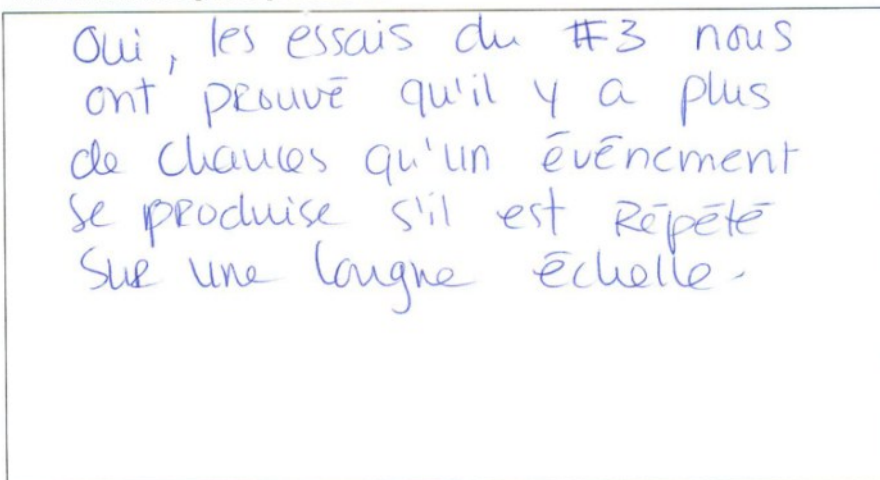 Oui, les essais du #3 nous
ont prouvé qu'il y a plus
de chances qu'un événement
se produise s'il est Répété
sur une longue échelle.